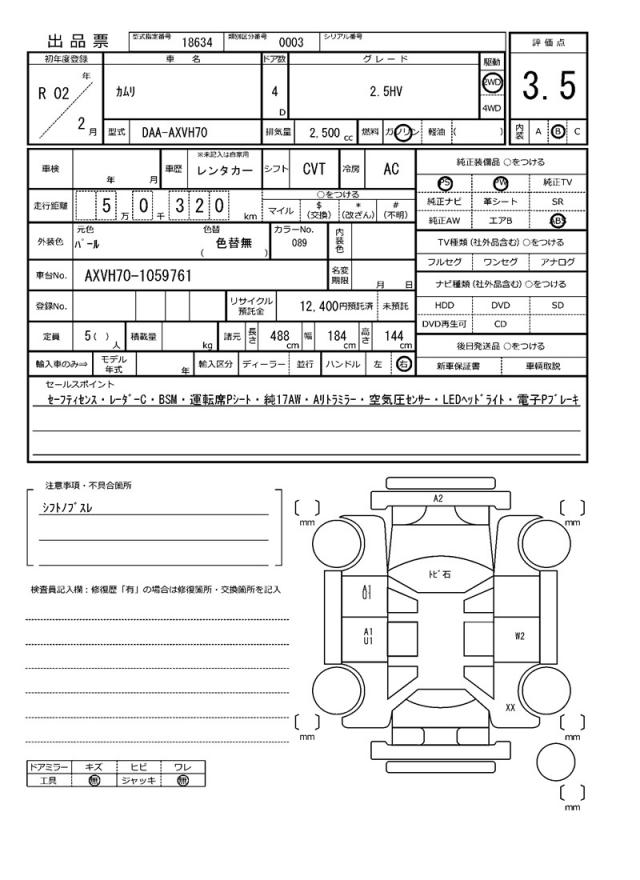 出 品 票 型式指定番号 18634 類別区分番号 0003 シリアル番号
初年度登録 車 名 ドア数 グレード 駆動 評価点
R 02 年 2 月 カムリ 4 D 2.5HV 2WD 4WD 3.5
型式 DAA-AXVH70 排気量 2,500 cc 燃料 ガソリン 軽油 ( ) 内装 A B C
車検 年 月 車歴 ※未記入は自家用 レンタカー シフト CVT 冷房 AC 純正装備品 ○をつける
PS PW 純正TV
走行距離 5 万 0 千 3 2 0 km ○をつける 純正ナビ 革シート SR
マイル $(交換) *(改ざん) #(不明) 純正AW エアB ABS
外装色 元色 パール 色替 色替無 ( ) カラーNo. 089 内装色 TV種類 (社外品含む) ○をつける
フルセグ ワンセグ アナログ
車台No. AXVH70-1059761 名変期限 月 日 ナビ種類 (社外品含む) ○をつける
登録No. リサイクル預託金 12,400円預託済 未預託 HDD DVD SD
DVD再生可 CD
定員 5 ( ) 人 積載量 kg 諸元 長さ 488 cm 幅 184 cm 高さ 144 cm 後日発送品 ○をつける
輸入車のみ⇒ モデル年式 年 輸入区分 ディーラー 並行 ハンドル 左 右 新車保証書 車輌取説
セールスポイント
セーフティセンス・レーダーC・BSM・運転席Pシート・純17AW・Aリトラミラー・空気圧センサー・LEDヘッドライト・電子Pブレーキ
注意事項・不具合箇所
シフトノブスレ
検査員記入欄：修復歴「有」の場合は修復箇所・交換箇所を記入
A2
mm mm
トビ石
A1
U1
A1
U1
W2
XX
mm mm
mm
ドアミラー キズ ヒビ ワレ
工具 無 ジャッキ 無